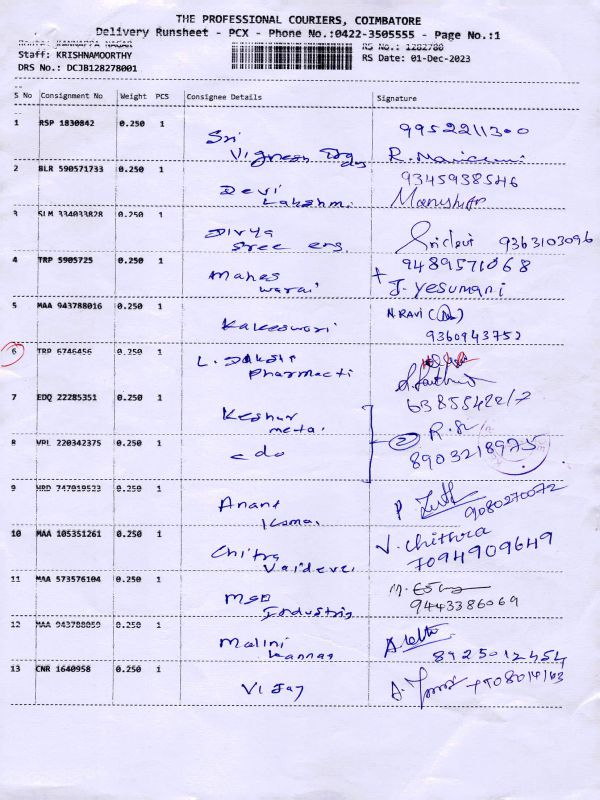 THE PROFESSIONAL COURIERS, COIMBATORE
Delivery Runsheet - PCX - Phone No.:0422-3505555 - Page No.:1
KANNAPPA NAGAR RS No.: 1282780
Staff: KRISHNAMOORTHY RS Date: 01-Dec-2023
DRS No.: DCJB128278001
S No Consignment No Weight PCS Consignee Details Signature
1 RSP 1830842 0.250 1 9952211300
Sri
Vignesh
2 BLR 590571733 0.250 1 9345938546
Devi
Lakshmi
3 SLM 334033828 0.250 1
Divya Sridevi 9363103096
Sree eng.
4 TRP 5905725 0.250 1 9489571068
Mahes J. Yesumani
warai
5 MAA 943788016 0.250 1 N. RAVI
Kaleeswari 9360943752
6 TRP 6746456 0.250 1
L. Dakshi
Pharmacti
7 EDQ 22285351 0.250 1 63855422/7
Keshur
metal
8 VPL 220342375 0.250 1 2
do 8903218975
9 HRD 747019533 0.250 1
Anand 9080270072
Kumar
10 MAA 105351261 0.250 1 V. Chithra
Chitra 7094909649
Vaidevei
11 MAA 573576104 0.250 1
MSD 9443386069
Industris
12 MAA 943788059 0.250 1
Malini 8925012454
Kannan
13 CNR 1640958 0.250 1
Vijay